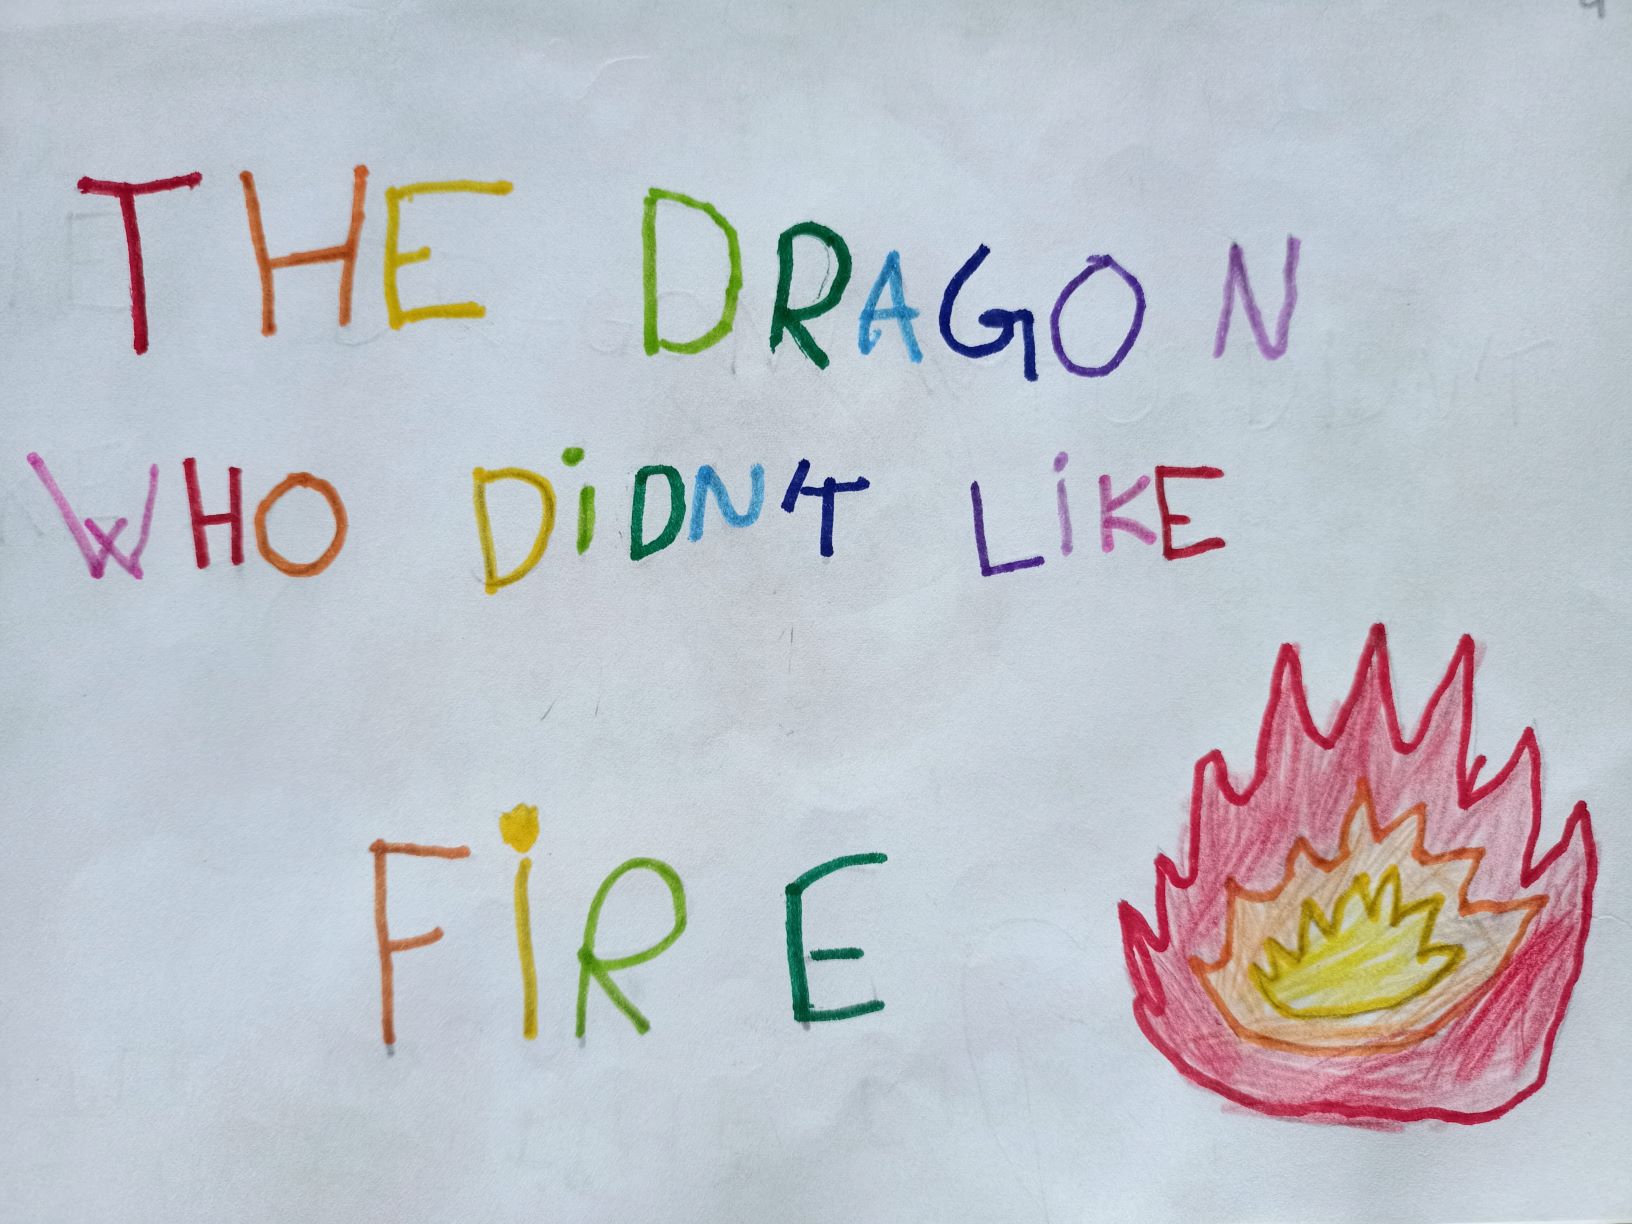 THE DRAGON
WHO DiDN'T LiKE
FiRE